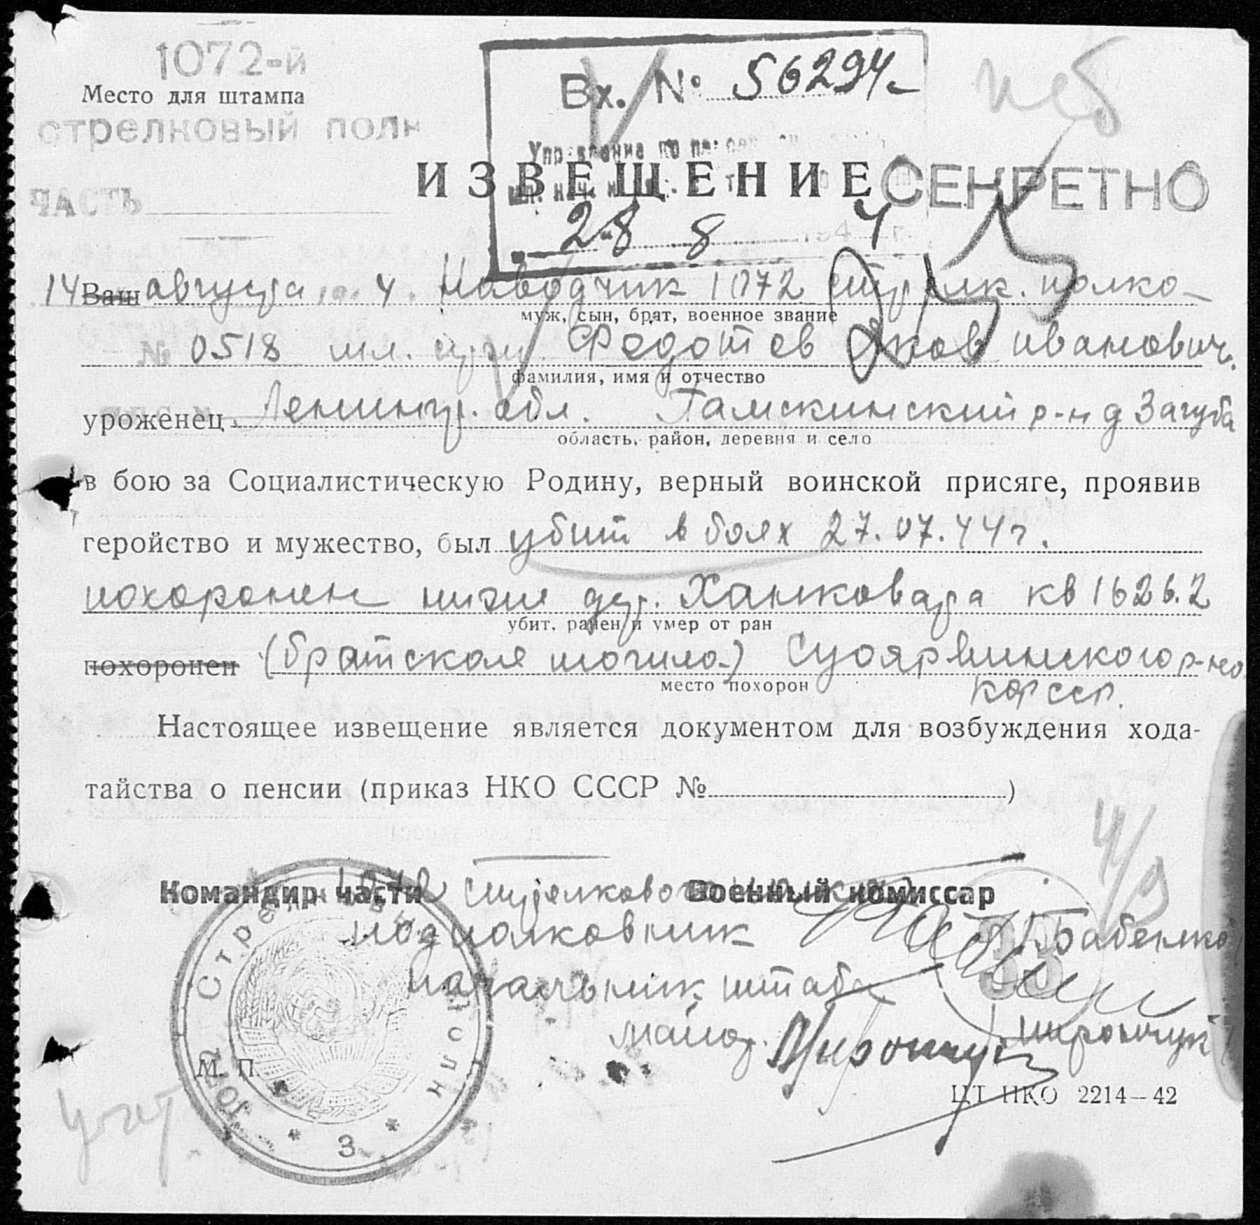 1072-й
Место для штампа
стрелковый полк
ЧАСТЬ
Вх. № 56294
Управление по
28 8 194 4 г.
ИЗВЕЩЕНИЕ
СЕКРЕТНО
14 Ваш августа 4 г. Наводчик 1072 стрелк. полка
муж, сын, брат, военное звание
№ 0518 мл. серж. Федотов Яков Иванович
фамилия, имя и отчество
уроженец Ленингр. обл. р-н д Загуба
область, район, деревня и село
в бою за Социалистическую Родину, верный воинской присяге, проявив
геройство и мужество, был убит в боях 27.07.44г.
похоронен дер. Ханковара кв 1626.2
убит, ранен и умер от ран
похоронен (братская могила) Суоярвинского р-на
место похорон
КФССР.
Настоящее извещение является документом для возбуждения хода-
тайства о пенсии (приказ НКО СССР № )
4/9
Командир части 1072 стрелкового полка Военный комиссар
подполковник Бабенко
начальник штаба
майор Мирончук
М. П.
1072 Стрелковый Полк * 3 *
ЦТ НКО 2214—42
учт